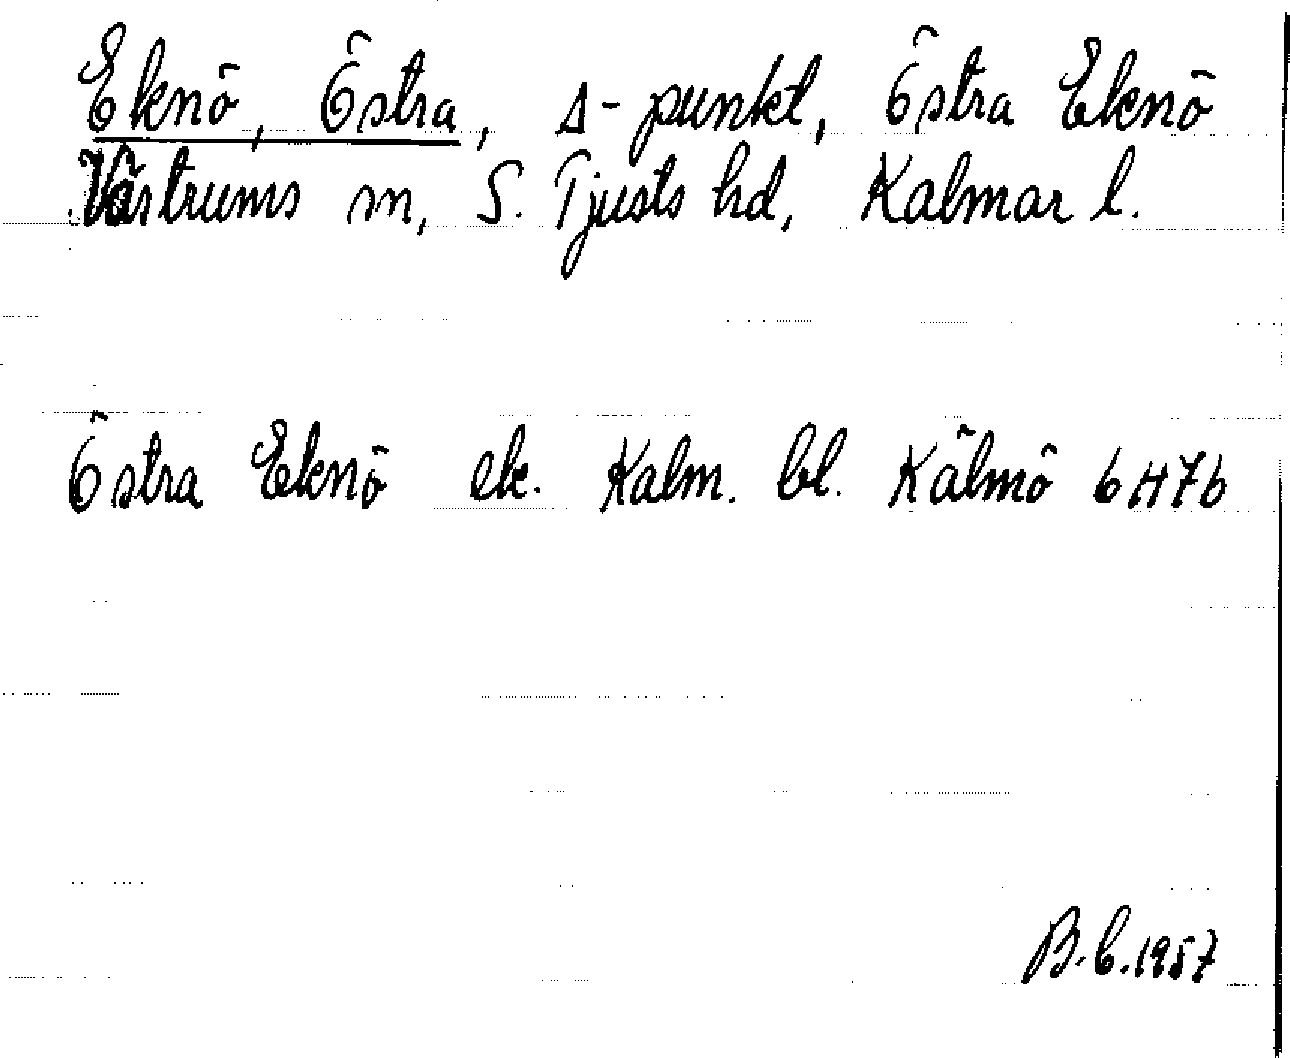 Eknö, Östra, Δ-punkt, Östra Eknö
Västrums sn, S. Tjusts hd, Kalmar l.
Östra Eknö ek. Kalm. bl. Kälmö 6H7b
B.b.1957